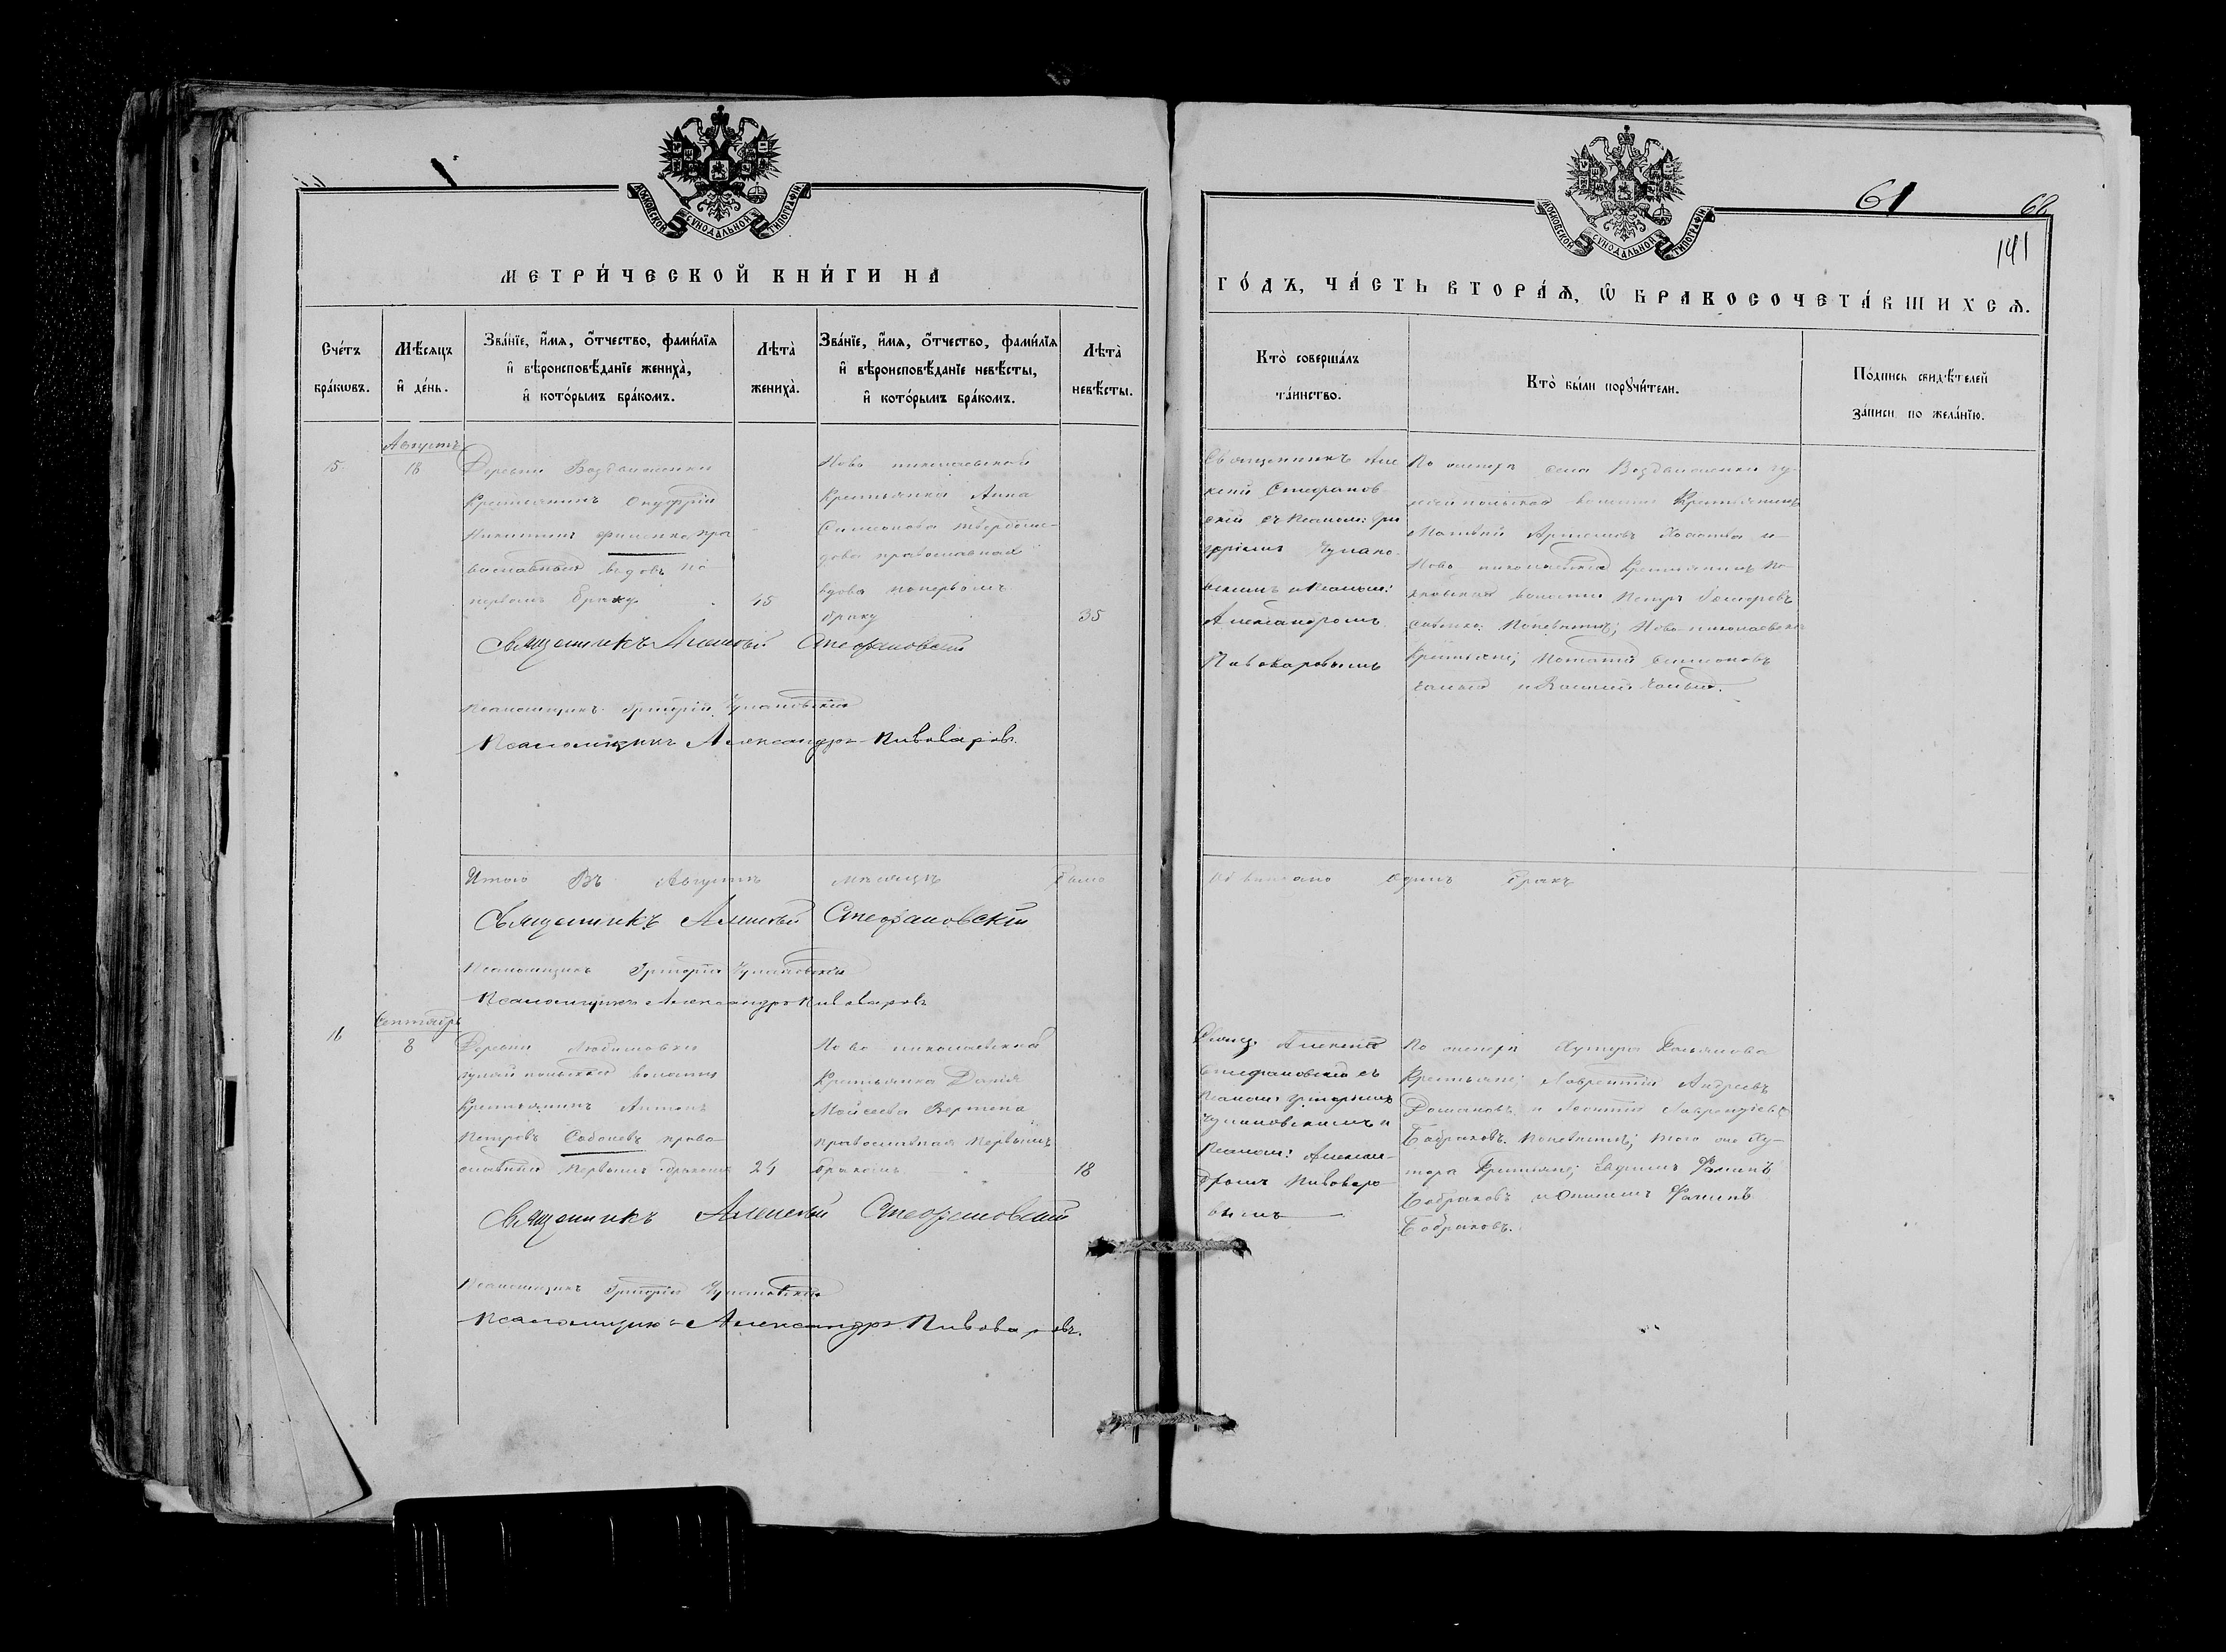 МОСКОВСКОЙ СУНОДАЛЬНОЙ ТИПОГРАФІИ
МЕТРИ́ЧЕСКОЙ КНИ́ГИ НА
Сче́тъ бра́кѡвъ.
Мѣ́сяцъ и҆ де́нь.
Зва́нїе, и҆́мя, ѻ҆́тчество, фами́лїя
и҆ вѣроисповѣ́данїе жениха̀,
и҆ кото́рымъ бра́комъ.
Лѣта̀ жениха̀.
Зва́нїе, и҆́мя, ѻ҆́тчество, фами́лїя
и҆ вѣроисповѣ́данїе невѣ́сты,
и҆ кото́рымъ бра́комъ.
Лѣта̀ невѣ́сты.
15
Августъ
18
Деревни Воздвиженки
Крестьянинъ Онуфрій
Никитинъ Фисенко пра
вославный вдовъ по
первомъ браку
45
Ново николаевской
Крестьянка Анна
Симонова
дова православная
вдова по первомъ
браку
35
Священникъ Алексѣй Стефановскій
Псаломщикъ Григорій Чулановскій
Псаломщикъ Александръ Пивоваровъ.
Итого Въ Августѣ мѣсяцѣ было
Священникъ Алексѣй Стефановскій
Псаломщикъ Григорій Чулановскій
Псаломщикъ Александръ Пивоваровъ
16
Сентябрь
8
Деревни Любимовки
гуляй польской волости
Крестьянинъ Антонъ
Петровъ Соболевъ право
славный Первымъ бракомъ
24
Ново николаевской
Крестьянка Дарія
Моисеева Вертела
православная Первымъ
бракомъ.
18
Священникъ Алексѣй Стефановскій
Псаломщикъ Григорій Чулановскій
Псаломщикъ Александръ Пивоваровъ.
МОСКОВСКОЙ СУНОДАЛЬНОЙ ТИПОГРАФІИ
61
62
141
ГО́ДЪ, ЧА́СТЬ ВТОРА́Я, Ѡ҆ БРАКОСОЧЕТА́ВШИХСЯ.
Кто̀ соверша́лъ та́инство.
Кто̀ бы́ли порꙋчи́тели.
По́дпись свидѣ́телей за́писи по жела́нїю.
Священникъ Але
ксѣй Стефанов
скій съ Псалом: Гри
горіемъ Чулано
вскимъ и Псалом:
Александромъ
Пивоваровымъ
По женихѣ села Воздвиженки гу
ляй польской волости Крестьянинъ
Матвѣй Артемовъ и
Ново николаевской Крестьянинъ По
волости Петръ
По невѣстѣ; Ново николаевскіе
Крестьяне;
Записано Одинъ бракъ
Свящ. Алексѣй
Стефановскій съ
Псалом: Григоріемъ
Чулановскимъ и
Псалом: Алексан
дромъ Пивоваро
вымъ
По женихѣ Хутора
Крестьяне; Лаврентій Андреевъ
и Леонтій Лаврентіевъ
Бобраковъ. По невѣстѣ; того же Ху
тора Крестьяне; Евдокимъ Фоминъ
Бобраковъ и Фоминъ
Бобраковъ.